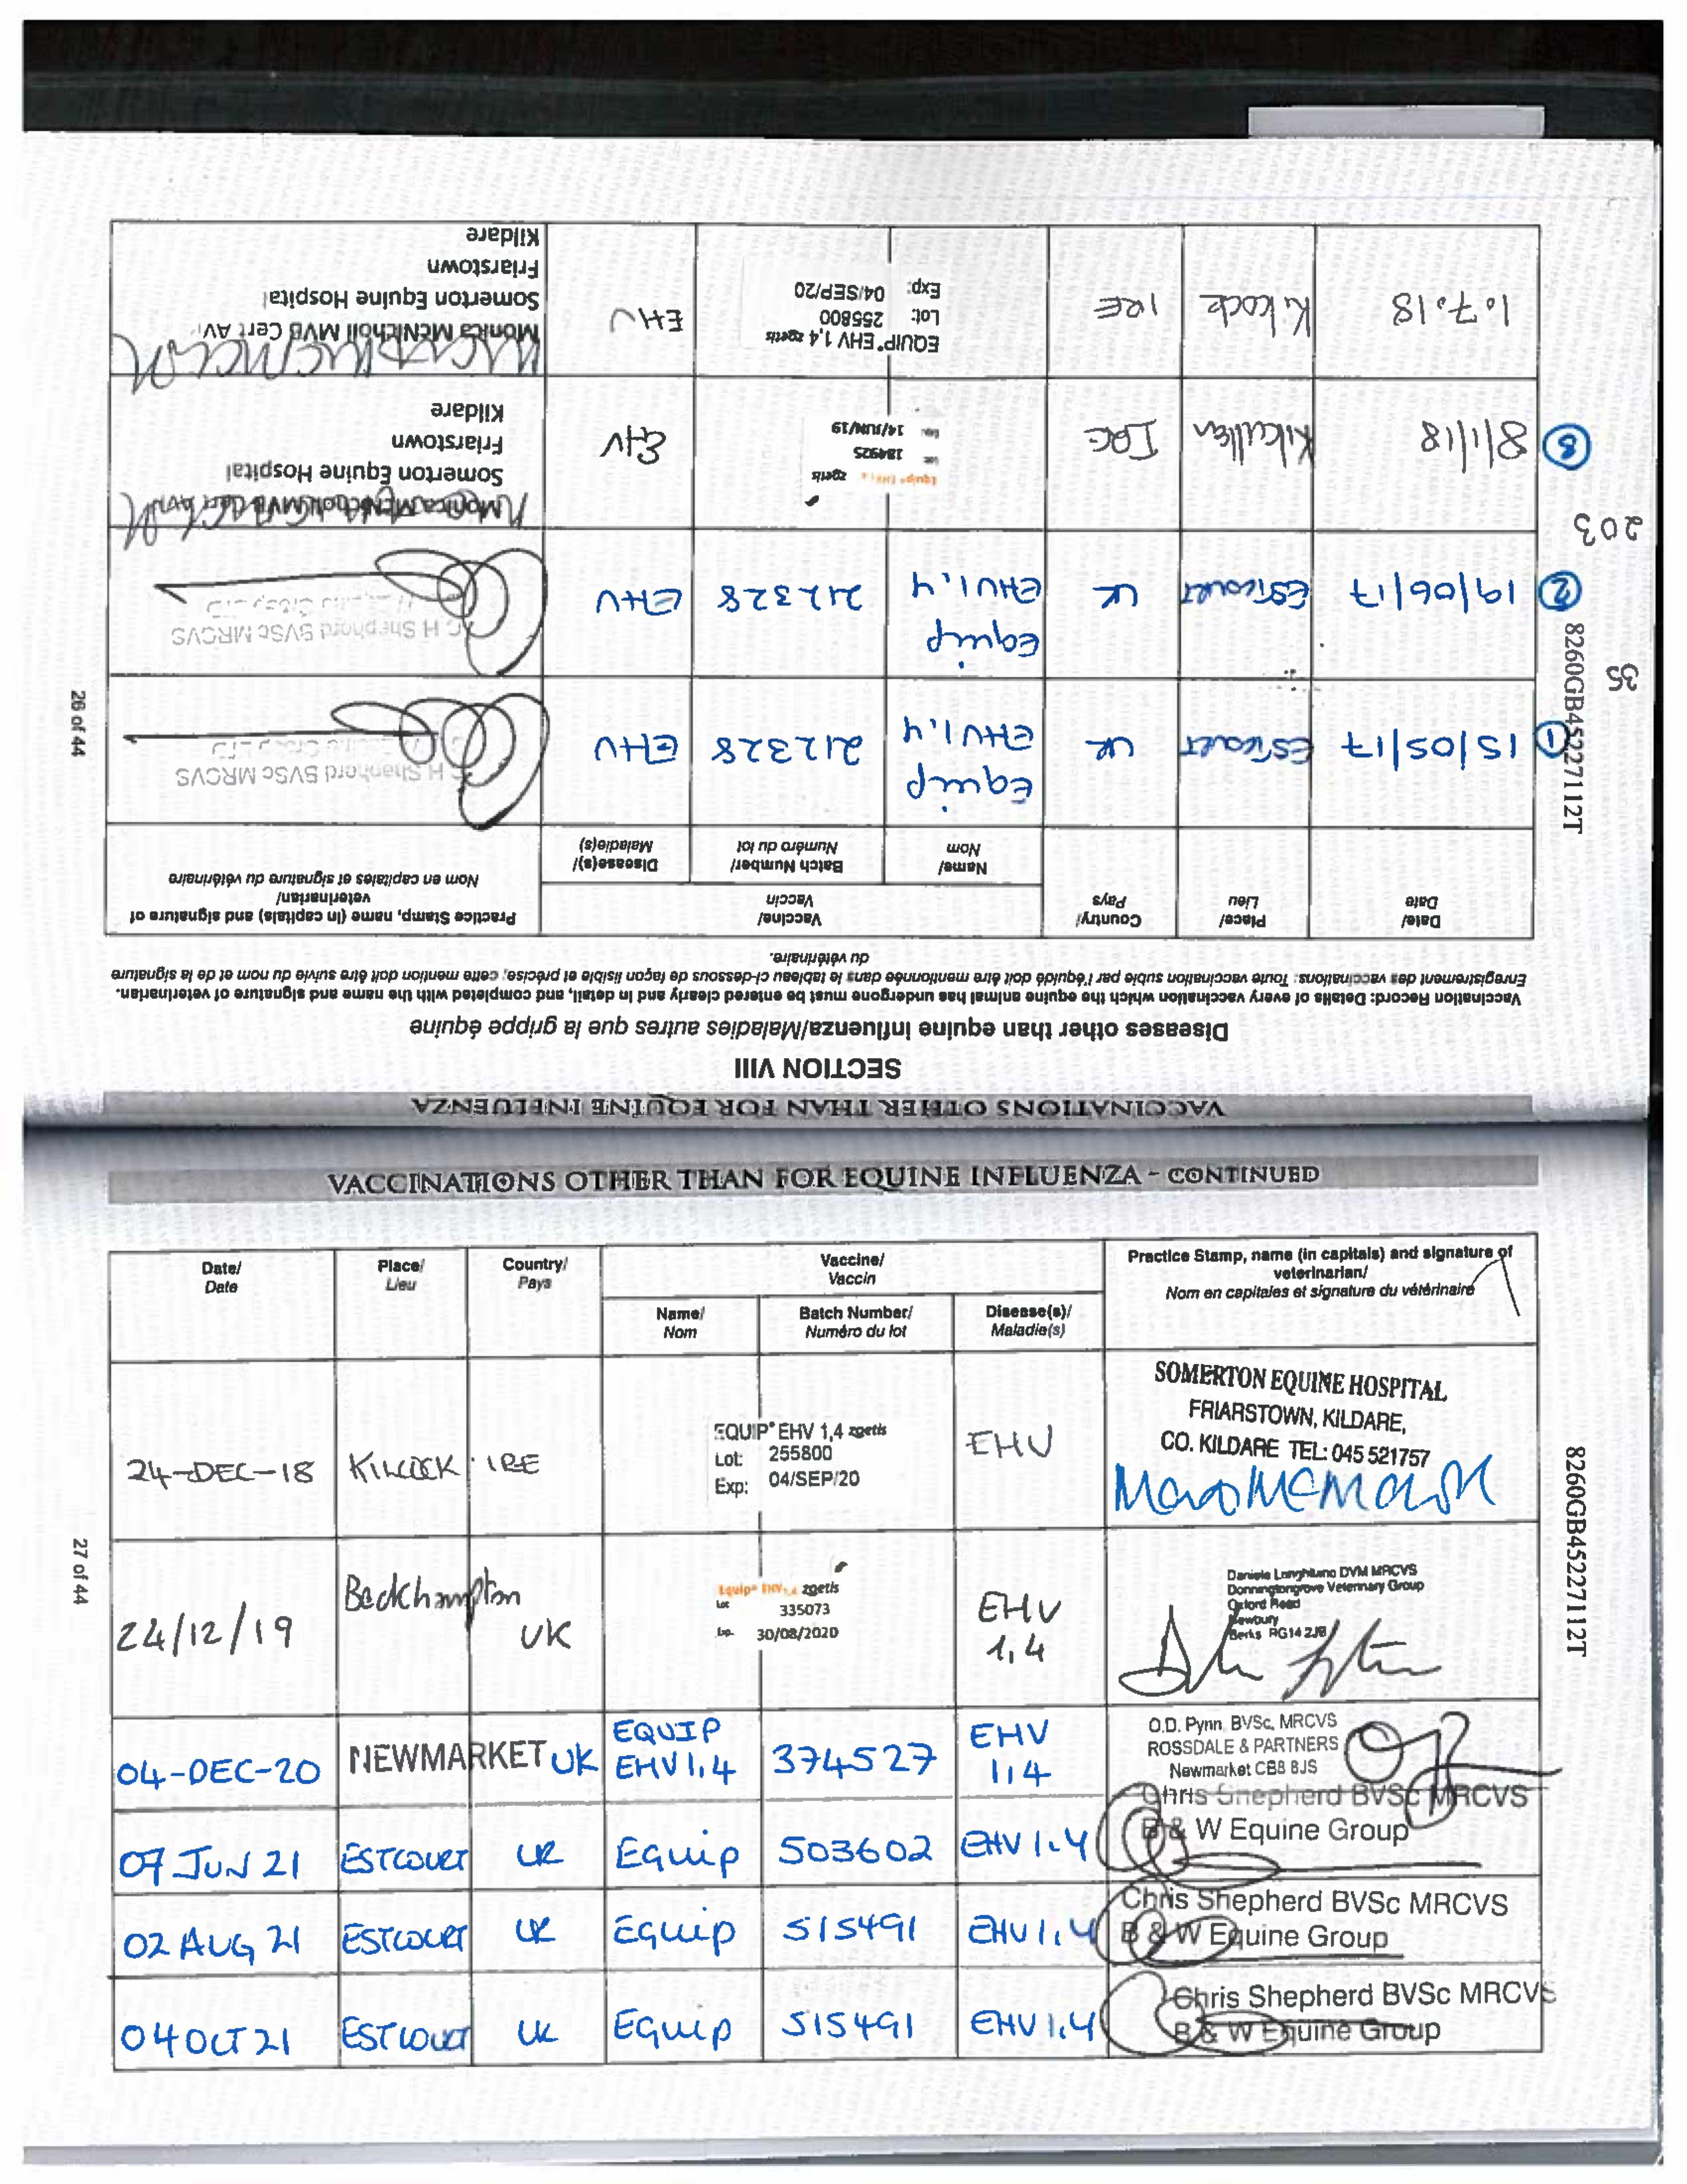 VACCINATIONS OTHER THAN FOR EQUINE INFLUENZA
SECTION VIII
Diseases other than equine influenza/Maladies autres que la grippe équine
Vaccination Record: Details of every vaccination which the equine animal has undergone must be entered clearly and in detail, and completed with the name and signature of veterinarian.
Enregistrement des vaccinations: Toute vaccination subie par l'équidé doit être mentionnée dans le tableau ci-dessous de façon lisible et précise, cette mention doit être suivie du nom et de la signature
du vétérinaire.
Date/ Place/ Country/ Vaccine/ Practice Stamp, name (in capitals) and signature of
Date Lieu Pays Vaccin veterinarian/
Nom en capitales et signature du vétérinaire
Name/ Batch Number/ Disease(s)/
Nom Numéro du lot Maladie(s)
① 15/05/17 ESTCOURT UK Equip EHV1,4 212328 EHV
C H Shepherd BVSc MRCVS
② 19/06/17 ESTCOURT UK Equip EHV1,4 212328 EHV
C H Shepherd BVSc MRCVS
③ 8/1/18 Kilcullen IRE
Equip® EHV 1,4 zoetis
184925
14/JUN/19
EHV
Monica McNicholl MVB Cert AVP
Somerton Equine Hospital
Friarstown
Kildare
1.7.18 Kilcock IRE
EQUIP® EHV 1,4 zoetis
Lot: 255800
Exp: 04/SEP/20
EHV
Monica McNicholl MVB Cert AV
Somerton Equine Hospital
Friarstown
Kildare
8260GB45227112T
35
203
26 of 44
VACCINATIONS OTHER THAN FOR EQUINE INFLUENZA - CONTINUED
Date/ Place/ Country/ Vaccine/ Practice Stamp, name (in capitals) and signature of
Date Lieu Pays Vaccin veterinarian/
Nom en capitales et signature du vétérinaire
Name/ Batch Number/ Disease(s)/
Nom Numéro du lot Maladie(s)
24-DEC-18 KILCOCK IRE
EQUIP® EHV 1,4 zoetis
Lot: 255800
Exp: 04/SEP/20
EHV
SOMERTON EQUINE HOSPITAL
FRIARSTOWN, KILDARE,
CO. KILDARE TEL: 045 521757
24/12/19 Beckhampton UK
Equip® EHV 1,4 zoetis
Lot 335073
Exp. 30/08/2020
EHV
1,4
DVM MRCVS
Donningtongrove Veterinary Group
Oxford Road
Newbury
Berks RG14 2JB
04-DEC-20 NEWMARKET UK EQUIP EHV1,4 374527 EHV 1,4
O.D. Pynn BVSc, MRCVS
ROSSDALE & PARTNERS
Newmarket CB8 8JS
07 JUN 21 ESTCOURT UK Equip 503602 EHV 1.4
Chris Shepherd BVSc MRCVS
B & W Equine Group
02 AUG 21 ESTCOURT UK Equip 515491 EHV1,4
Chris Shepherd BVSc MRCVS
B & W Equine Group
04 OCT 21 ESTCOURT UK Equip 515491 EHV 1.4
Chris Shepherd BVSc MRCVS
B & W Equine Group
8260GB45227112T
27 of 44